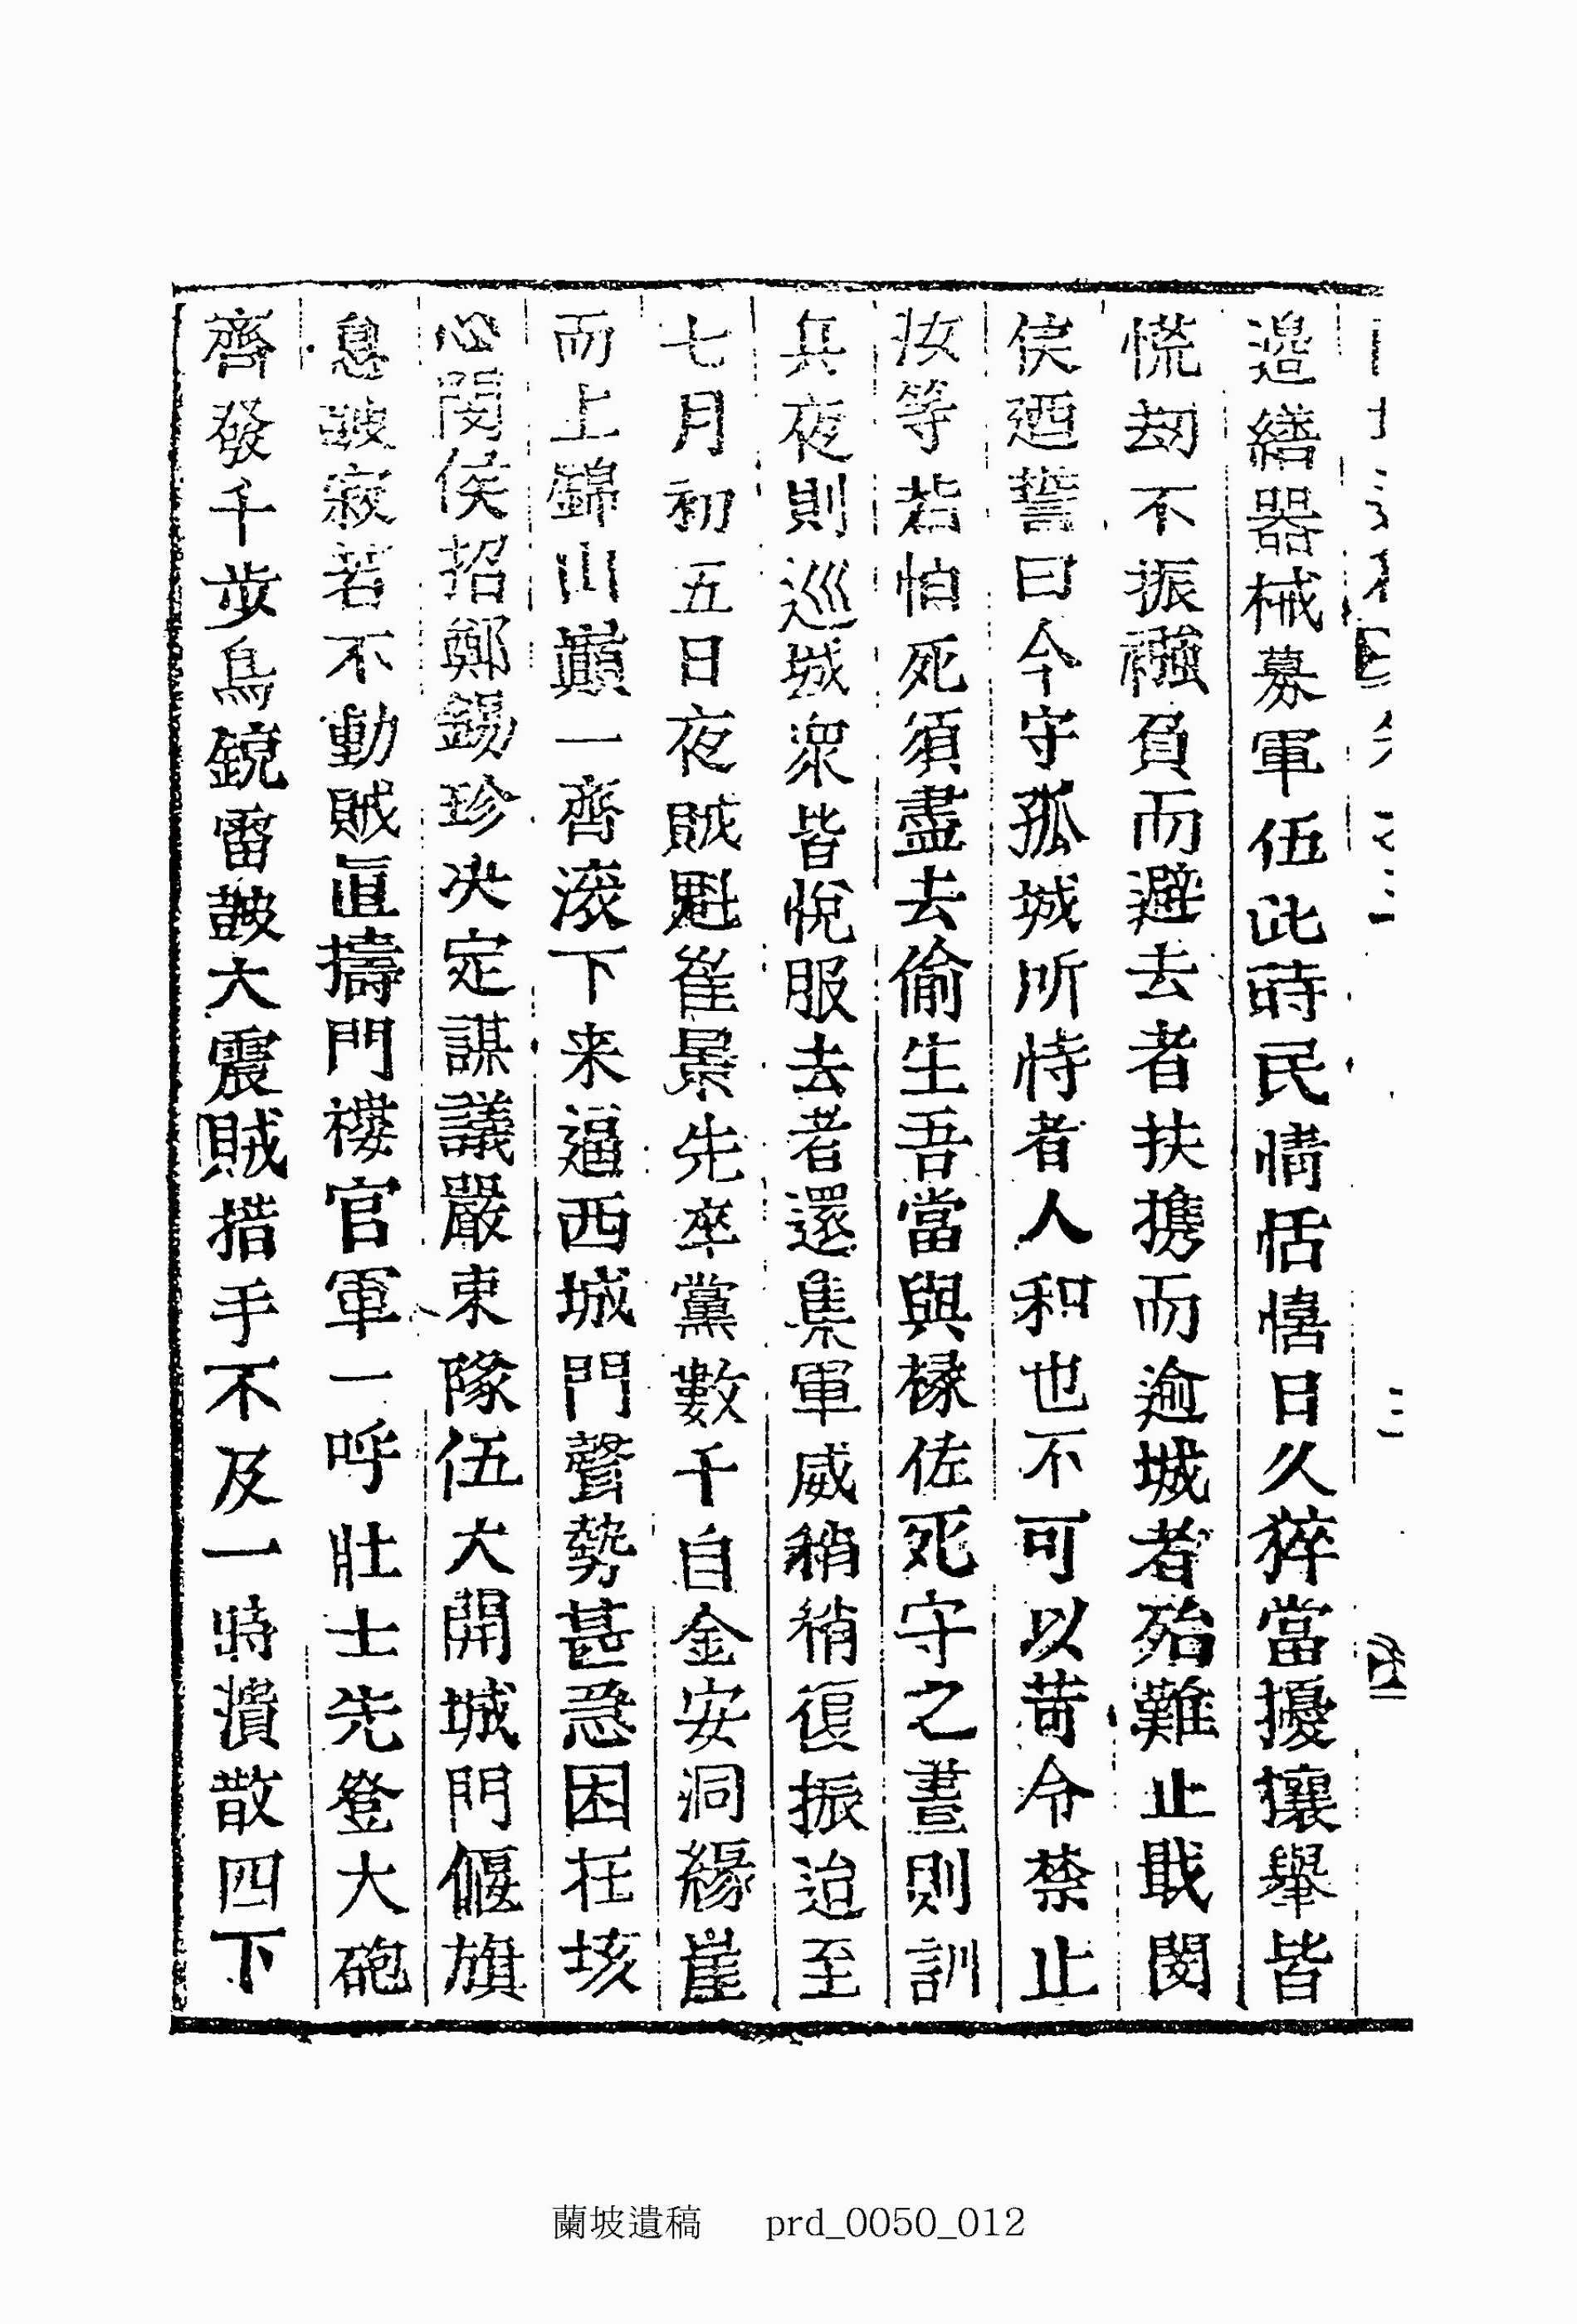 造繕器械募軍伍此時民情恬憘日久猝當擾攘舉皆
慌刼不振襁負而避去者扶携而逾城者殆難止戢閔
侯廼誓曰今守孤城所恃者人和也不可以苛令禁止
汝等若怕死須盡去偷生吾當與椽佐死守之晝則訓
兵夜則巡城衆皆悅服去者還集軍威稍稍復振迨至
七月初五日夜賊魁崔景先率黨數千自金安洞緣崖
而上錦山巓一齊滚下来逼西城門聲勢甚急困在垓
心閔侯招鄭錫珍决定謀議嚴束隊伍大開城門偃旗
息皷寂若不動賊直擣門樓官軍一呼壯士先登大砲
齊發千步鳥銃雷皷大震賊措手不及一時潰散四下
蘭坡遺稿 prd_0050_012